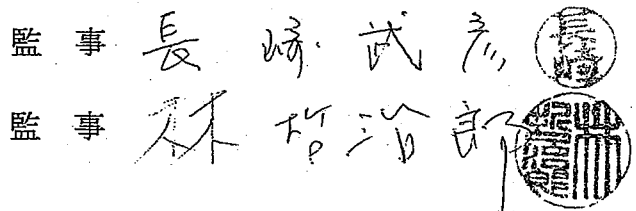 監事 長﨑武彦 長崎
監事 林哲治郎